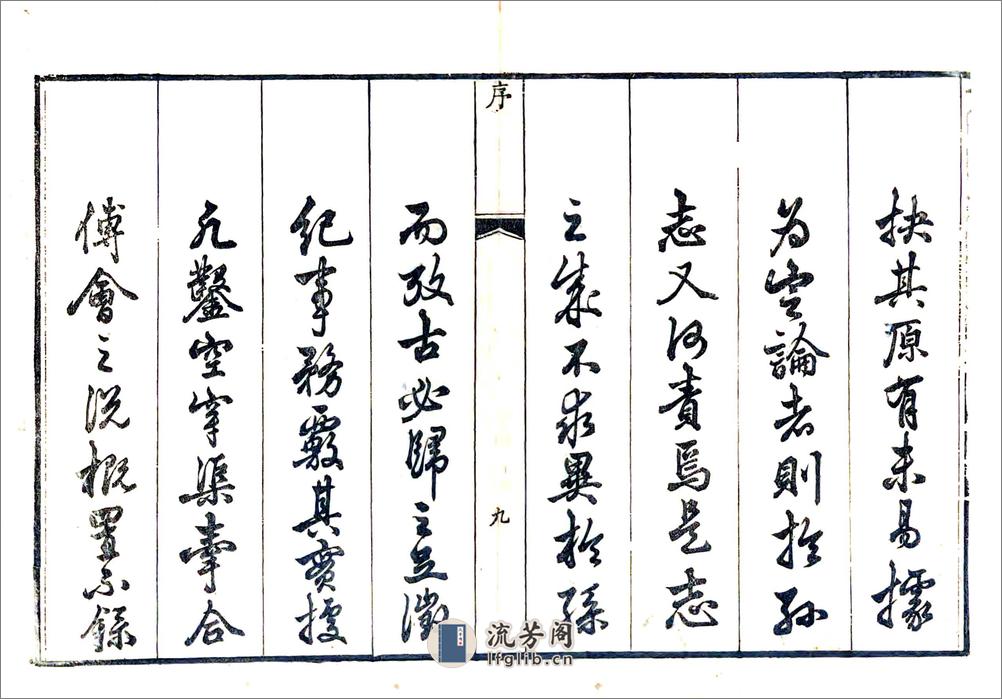 抉其原有未易據
为空論者則於孙
志又何責焉是志
之成不求異於孫
序
九
而攷古必歸之足徵
紀事務覈其實據
凡鑿空渠牽合
傅會之説概置不錄
流芳阁
lfglib.cn